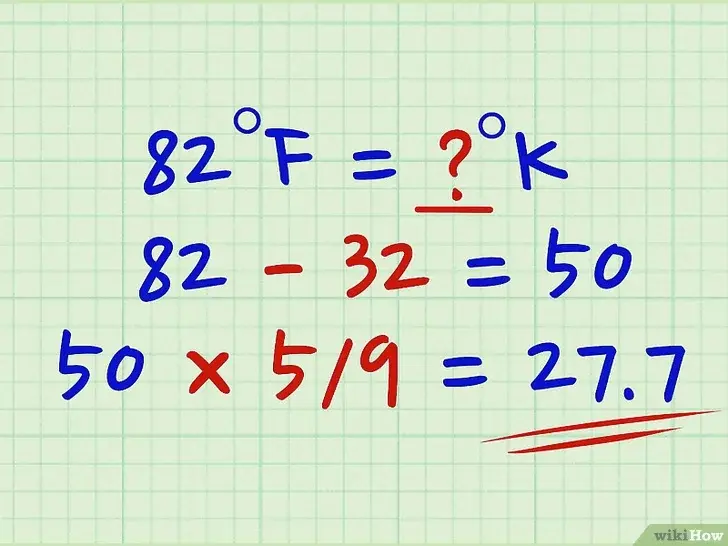 82°F = ?°K
82 - 32 = 50
50 x 5/9 = 27.7
wikiHow